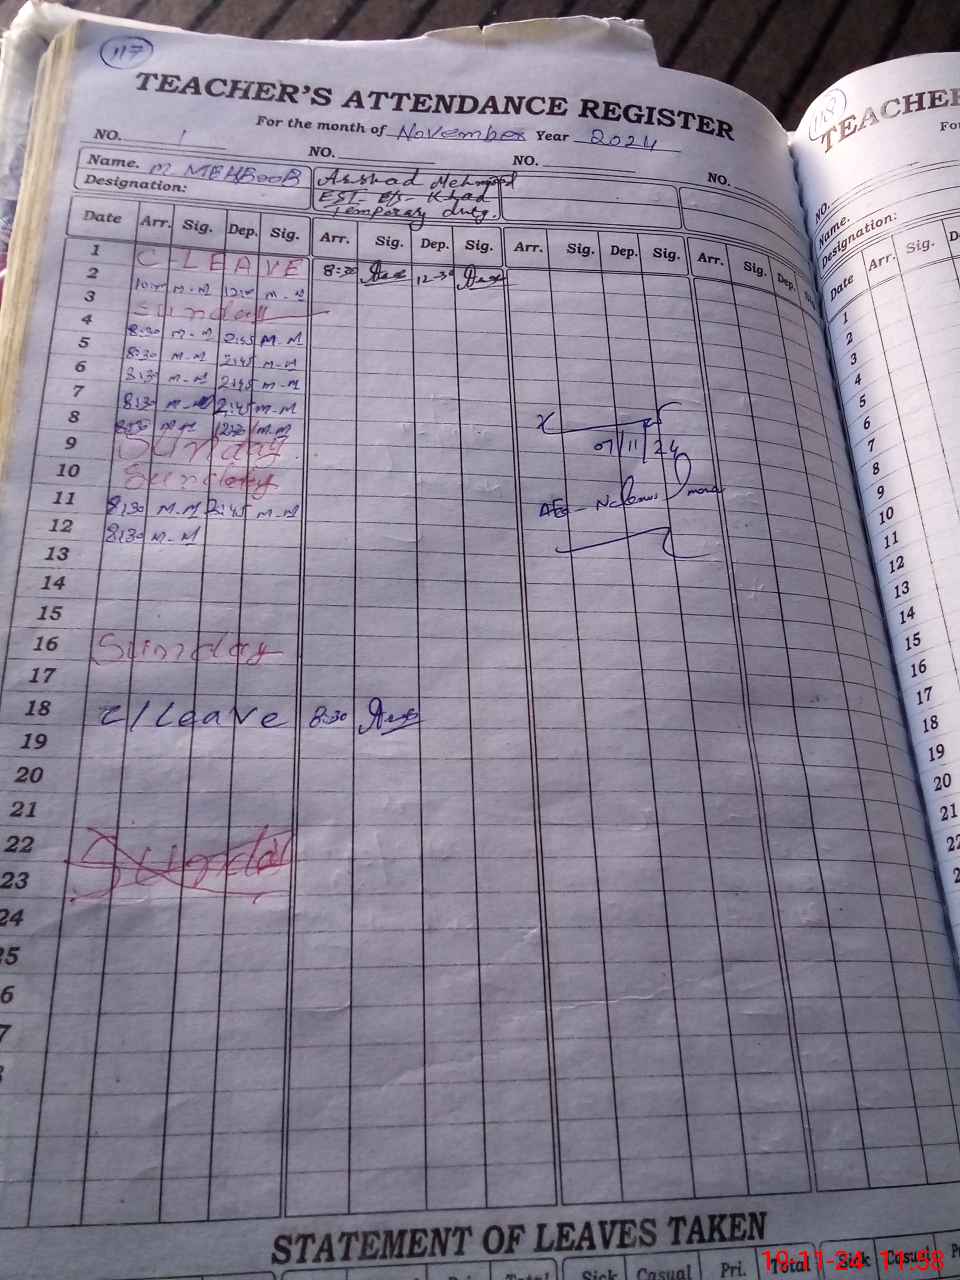 117
TEACHER'S ATTENDANCE REGISTER
For the month of November Year 2024
NO. 1 NO. NO. NO.
Name. M MEHBOOB Arshad Mehmood
Designation: EST. B/S- Khad
Temporary duty.
Date Arr. Sig. Dep. Sig. Arr. Sig. Dep. Sig. Arr. Sig. Dep. Sig. Arr. Sig. Dep.
1 C-LEAVE 8:30 12-30
2 M-M M-M
3 Sunday
4 8:30 M-M 2:45 M-M
5 8:30 M-M 2:45 M-M
6 8:30 M-M 2:45 M-M
7 8:30 M-M 2:45 M-M
8 8:30 M-M 12:30 M-M
9 Sunday
07/11/24
10 Sunday
11 8:30 M-M 2:45 M-M
12 8:30 M-M
13
14
15
16 Sunday
17
18 C/Leave 8:30
19
20
21
22 Sunda
23
24
25
6
7
STATEMENT OF LEAVES TAKEN
Pri. Total Sick Casual Pri. Total Sick Casual
118
TEACHE
Fo
NO.
Name.
Designation:
Date Arr. Sig. D
1
2
3
4
5
6
7
8
9
10
11
12
13
14
15
16
17
18
19
20
21
22
2
19-11-24 11:58